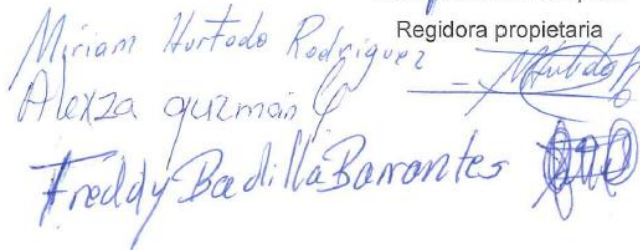 Regidora propietaria
Miriam Hurtado Rodriguez
Alexza guzmán
Freddy Badilla Barrantes